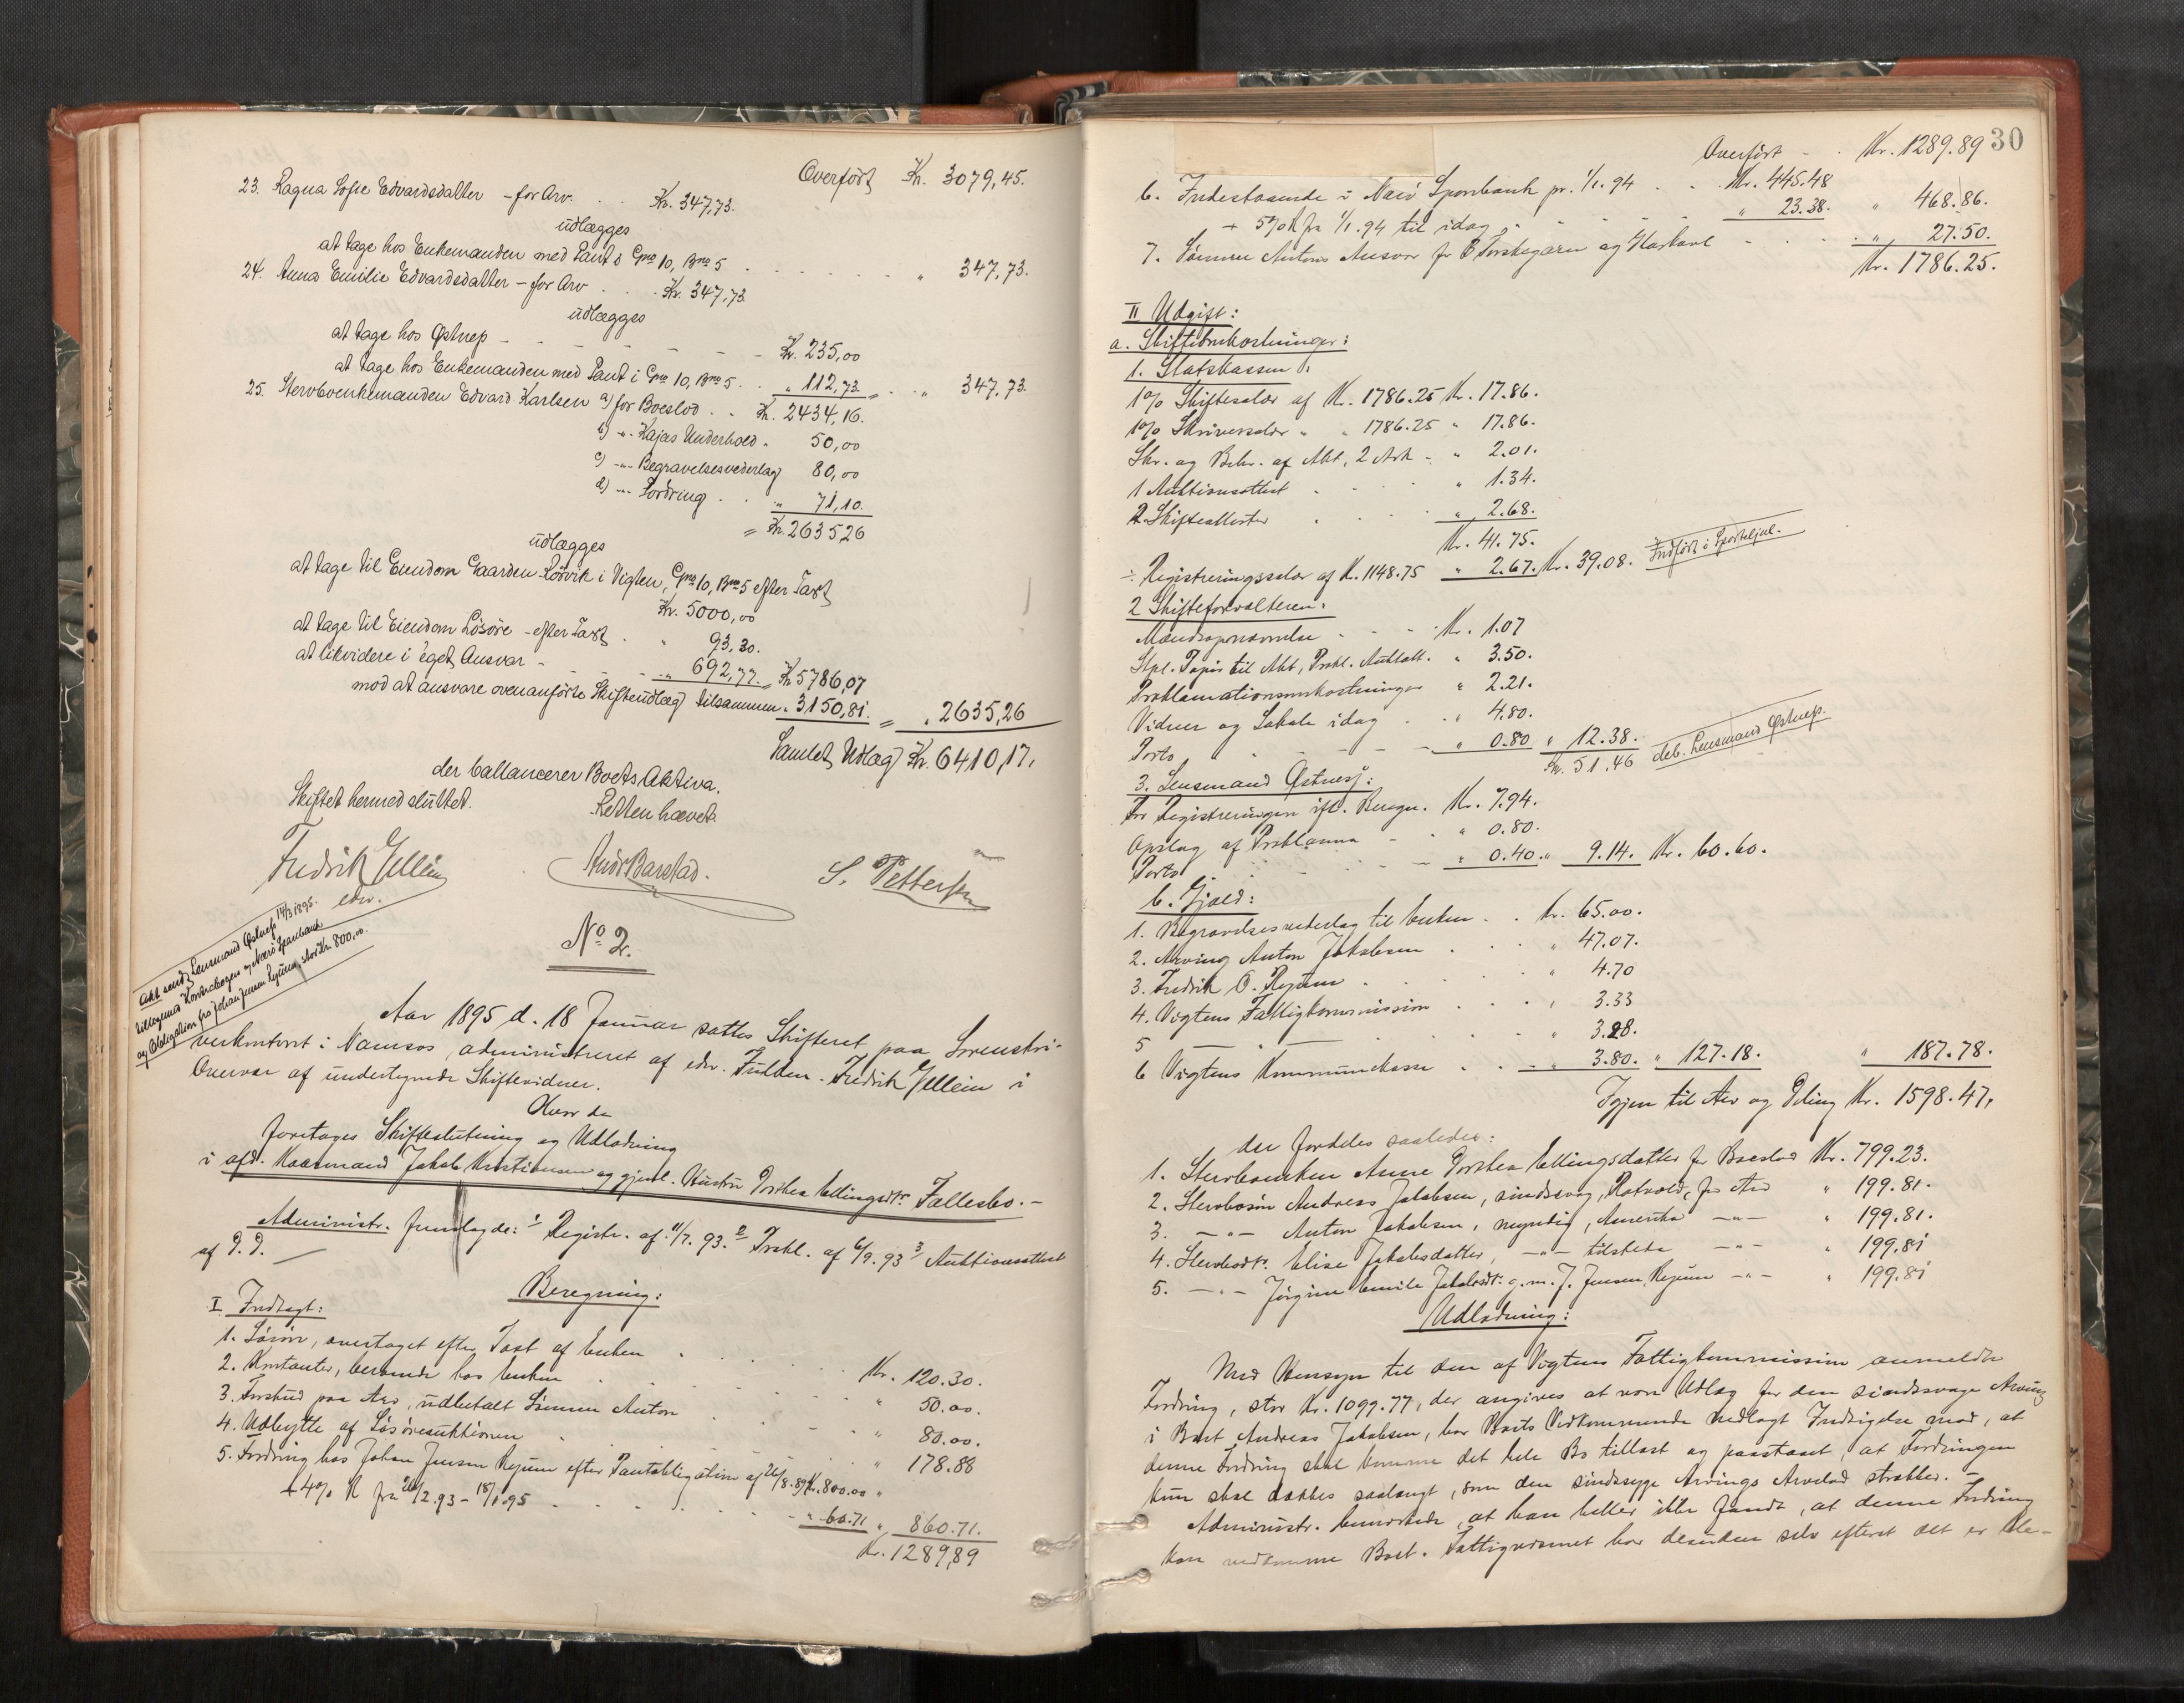 Overført Kr. 3079,45.
23. Ragna Sofie Edvardsdatter - for Arv. . . Kr. 347,73.
udlægges
at tage hos Enkemanden med Pant i Gno 10, Bno 5 . . . . . . . " 347,73.
24. Anna Emilie Edvardsdatter - for Arv . . . Kr. 347,73
udlægges
at tage hos Østnes - - - - - - Kr. 235,00
at tage hos Enkemanden med Pant i Gno 10, Bno 5 . . " 112,73 = . . " 347,73.
25. Stervboenkemanden Edvard Karlsen a) for Boeslod . . Kr. 2434,16.
b) " - Kajas Underhold . 50,00
c) -"- Begravelsesvederlag 80,00
d) -"- Fordring . . " 71,10.
= Kr. 2635,26
udlægges
at tage til Eiendom Gaarden Rørvik i Vigten, Gno 10, Bno 5 efter Taxt
Kr. 5000,00
at tage til Eiendom Løsøre - efter Taxt . " 93,30.
at likvidere i eget Ansvar - - - - " 692,77. = Kr. 5786,07
mod at ansvare ovenanførte Skifteudlæg tilsammen " 3150,81. = " 2635,26
Samlet Udlæg Kr. 6410,17.
der ballancerer Boets Aktiva.
Skiftet hermed sluttet. Retten hævet.
Fredrik Gellein
edv.
Andr Barstad.
S. Pettersen
Akt sendt Lensmand Østnes 14/3 1895.
tillegemed Kontrabogen og Nærø Sparebank
og Obligation fra Johan Jensen Rejum, stor Kr. 800,00.
No 2.
Aar 1895 d. 18 Januar sattes Skifteret paa Sorenskri-
verkontoret i Namsos, administreret af edv. Fuldm. Fredrik Gellein i
Overvær af undertegnede Skiftevidner.
Hvor da
foretages Skifteslutning og Udlodning
i afd. Kaarmand Jakob Kristiansen og gjenl. Hustru Dorthea Ellingsdtr. Fællesbo. -
Administr. fremlagde: 1 Registr. af 11/7. 93. 2 Prokl. af 6/9. 93 3 Auktionsattest
af D. D. —
Beregning:
I Indtægt:
1. Løsøre, overtaget efter Taxt af Enken . . . . . . Kr. 120.30.
2. Kontanter, beroende hos Enken . . . . . . " 50.00.
3. Forskud paa Arv, udbetalt Sønnen Anton . . . . " 80.00.
4. Udbytte af Løsøreauktionen . . . . . . " 178.88
5. Fordring hos Johan Jensen Rejum efter Pantobligation af 26/8. 89 Kr. 800.00 "
+ 4% R fra 26/2. 93 - 18/1. 95 . . . . . . " 60.71 " 860.71.
Kr. 1289,89
30
Overført - . Kr. 1289.89
6. Indestaaende i Nærø Sparebank pr. 1/1. 94 . . Kr. 445.48
+ 5% R fra 1/1. 94 til idag . - - - - " 23.38. " 468.86.
7. Sønnen Antons Ansvar for Torskegarn og - - - . . " 27.50.
Kr. 1786.25.
II Udgift:
a. Skifteomkostninger:
1. Statskassen:
1% Skiftesalær af Kr. 1786.25 Kr. 17.86.
1% Skriversalær " " 1786.25 " 17.86.
Skr. og Bekr. af Akt, 2 Ark - " 2.01.
1 Auktionsattest . . . . " 1.34.
2. Skifteattester . . . " 2.68.
Kr. 41.75.
÷ Registreringssalær af Kr. 1148.75 " 2.67. Kr. 39.08. Indført i Sporteljnl.
2 Skifteforvalteren:
Mændsopnævnelse - - - Kr. 1.07
Stpl. Papir til Akt, Prokl. Auktatt. " 3.50.
Proklamationsomkostninger " 2.21.
Vidner og Lokale idag . . " 4.80.
Porto - - - - " 0.80 " 12.38.
Kr. 51.46 deb. Lensmand Østnes.
3. Lensmand Østnes:
For Registreringen ifl. Beregn. Kr. 7.94.
Opslag af Proklama - . " 0.80.
Porto . . . - - " 0.40. " 9.14. Kr. 60.60.
b. Gjæld:
1. Begravelsesvederlag til Enken . . Kr. 65.00.
2. Arving Anton Jakobsen . . . " 47.07.
3. Fredrik O. Rejum . . . . " 4.70
4. Vigtens Fattigkommission . . . " 3.33
5 — " — . . " 3.28.
6 Vigtens Kommunekasse . . - " 3.80. " 127.18. " 187.78.
Igjen til Arv og Deling Kr. 1598.47.
der fordeles saaledes:
1. Stervboenken Anne Dorthea Ellingsdatter for Boeslod Kr. 799.23.
2. Stervbosøn Andreas Jakobsen, sindssvag, Rotvold, for Arv " 199.81.
3. -"- Anton Jakobsen, myndig, Amerika -"- " 199.81.
4. Stervbodtr. Elise Jakobsdatter, -"- tilstede -"- " 199.81
5. -"- Jørgine Emilie Jakobsdtr. g. m. J. Jensen, Rejum -"- " 199.81
Udlodning:
Med Hensyn til den af Vigtens Fattigkommission anmeldte
Fordring, stor Kr. 1099.77, der angives at være Udlæg for den sindssvage Arving
i Boet Andreas Jakobsen, har Boets Vedkommende nedlagt Indsigelse mod, at
denne Fordring skal komme det hele Bo tillast og paastaaet, at Fordringen
kun skal dækkes saalangt, som den sindssyge Arvings Arvelod strækker. -
Administr. bemærkede, at han heller ikke fandt, at denne Fordring
kan vedkomme Boet. Fattigvæsenet har desuden selv efteret det er